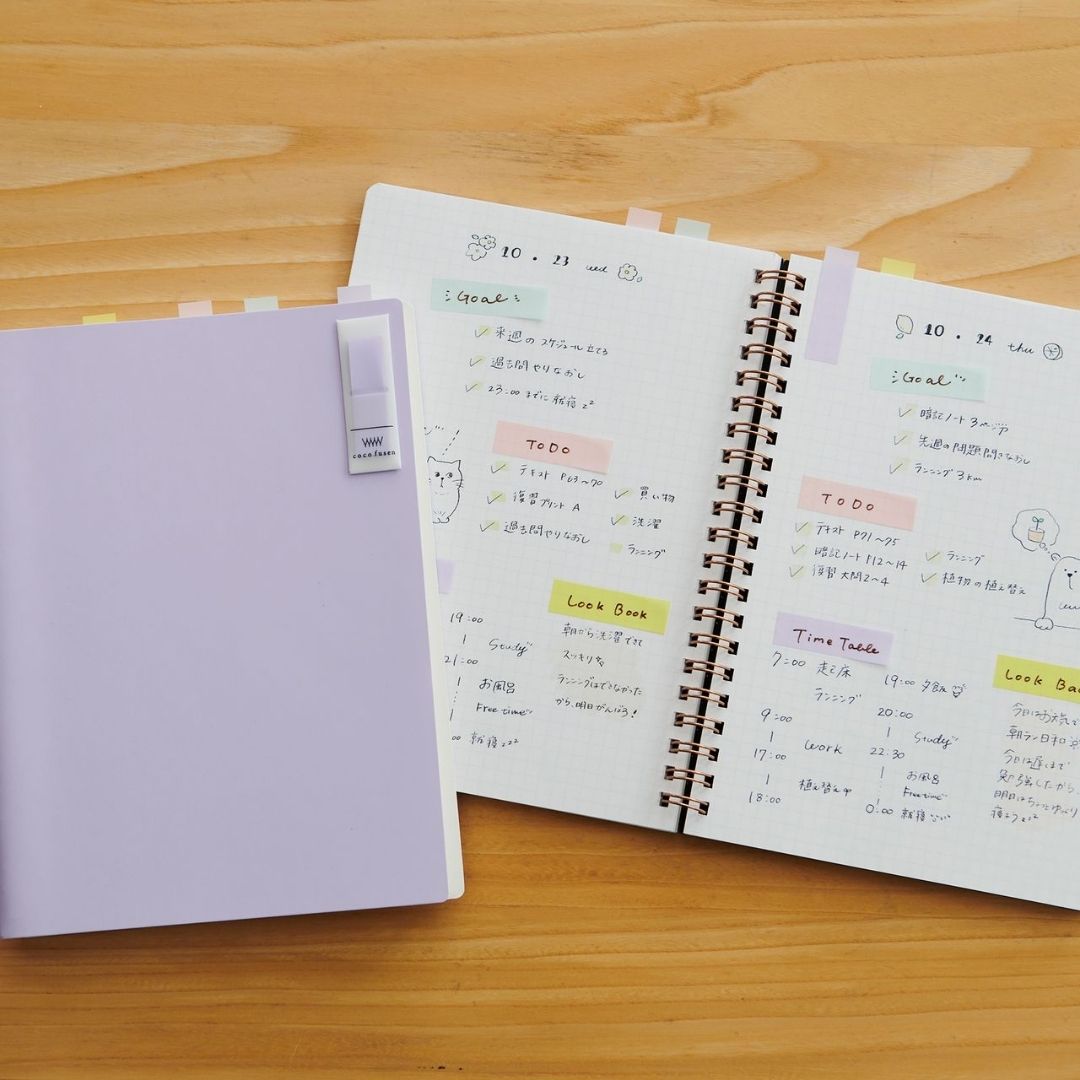 cocofusen
10 . 23 wed
Goal
来週の スケジュール 立てる
過去問やりなおし
23:00 までに 就寝 zz
ToDo
テキスト P63〜70
復習プリント A
過去問やりなおし
買い物
洗濯
ランニング
19:00
Study
21:00
お風呂
Free time
00 就寝 zzz
Look Book
朝から洗濯できて
スッキリ
ランニングはできなかった
から、明日がんばろう!
10 . 24 thu
Goal
暗記ノート 3ページ
先週の問題
ランニング 3km
ToDo
テキスト P71〜75
暗記ノート P12〜14
復習 大問2〜4
ランニング
植物の植え替え
Time Table
7:00 起床
ランニング
9:00
Work
17:00
植え替え
18:00
19:00 夕食
20:00
Study
22:30
お風呂
Free time
0:00 就寝
Look Ba
今日はお天気で
朝ラン日和
今日は遅くまで
勉強したから、
明日はちょっとゆっくり